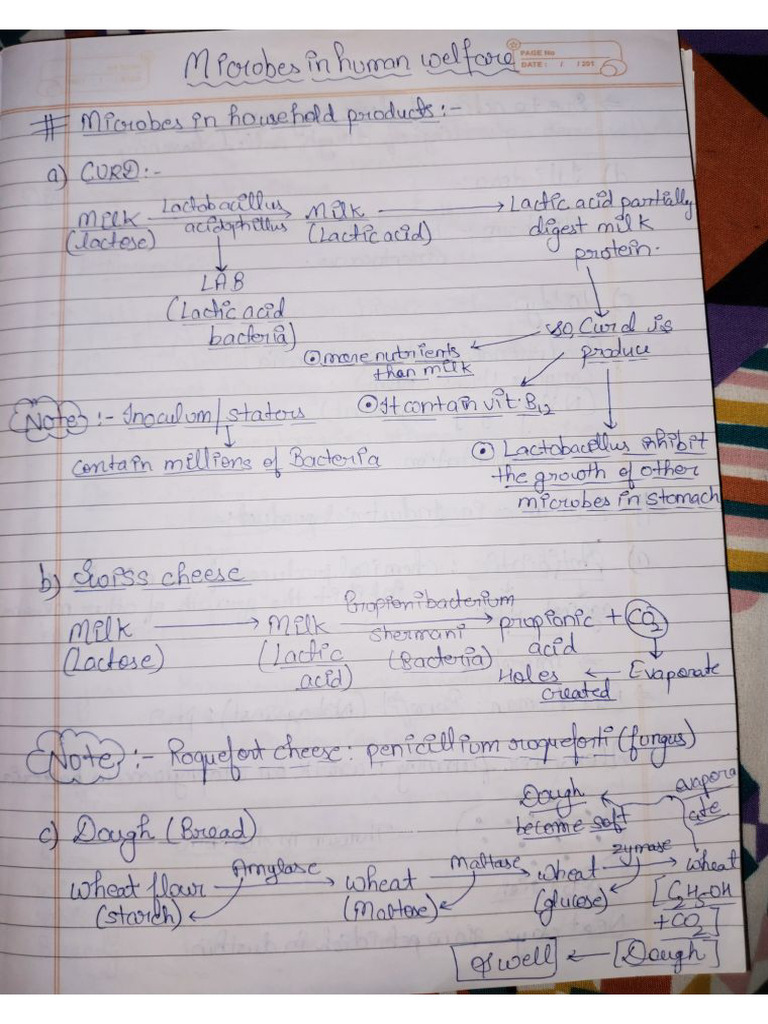 PAGE No
DATE: / /201
Microbes in human welfare
# Microbes in household products:-
a) CURD:-
Milk (lactose) → Lactobacillus acidophillus → Milk (Lactic acid) → Lactic acid partially digest milk protein.
LAB
(Lactic acid
bacteria)
so, Curd is
produce
⊙ more nutrients
than milk
⊙ It contain vit. B12
⊙ Lactobacillus inhibit
the growth of other
microbes in stomach
Note:- Inoculum/staters
contain millions of Bacteria
b) Swiss cheese
Milk (Lactose) → Milk (Lactic acid) → Propionibacterium shermani (Bacteria) → propionic acid + CO2
Evaporate
Holes
created
Note:- Roquefort cheese: penicillium roqueforti (fungus)
c) Dough (Bread)
wheat flour (starch) → Amylase → wheat (Maltose) → Maltase → wheat (glucose) → zymase → wheat [C2H5OH + CO2]
evapora
ate
Dough
become soft
[Dough]
swell